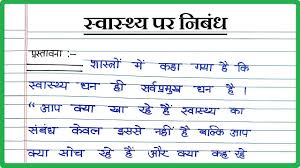 स्वास्थ्य पर निबंध
प्रस्तावना :-
शास्त्रों में कहा गया है कि
स्वास्थ्य धन ही सर्वप्रमुख धन है ।
“ आप क्या खा रहे हैं स्वास्थ्य का
संबंध केवल इससे नहीं है बल्कि आप
क्या सोच रहे हैं और क्या कह रहे